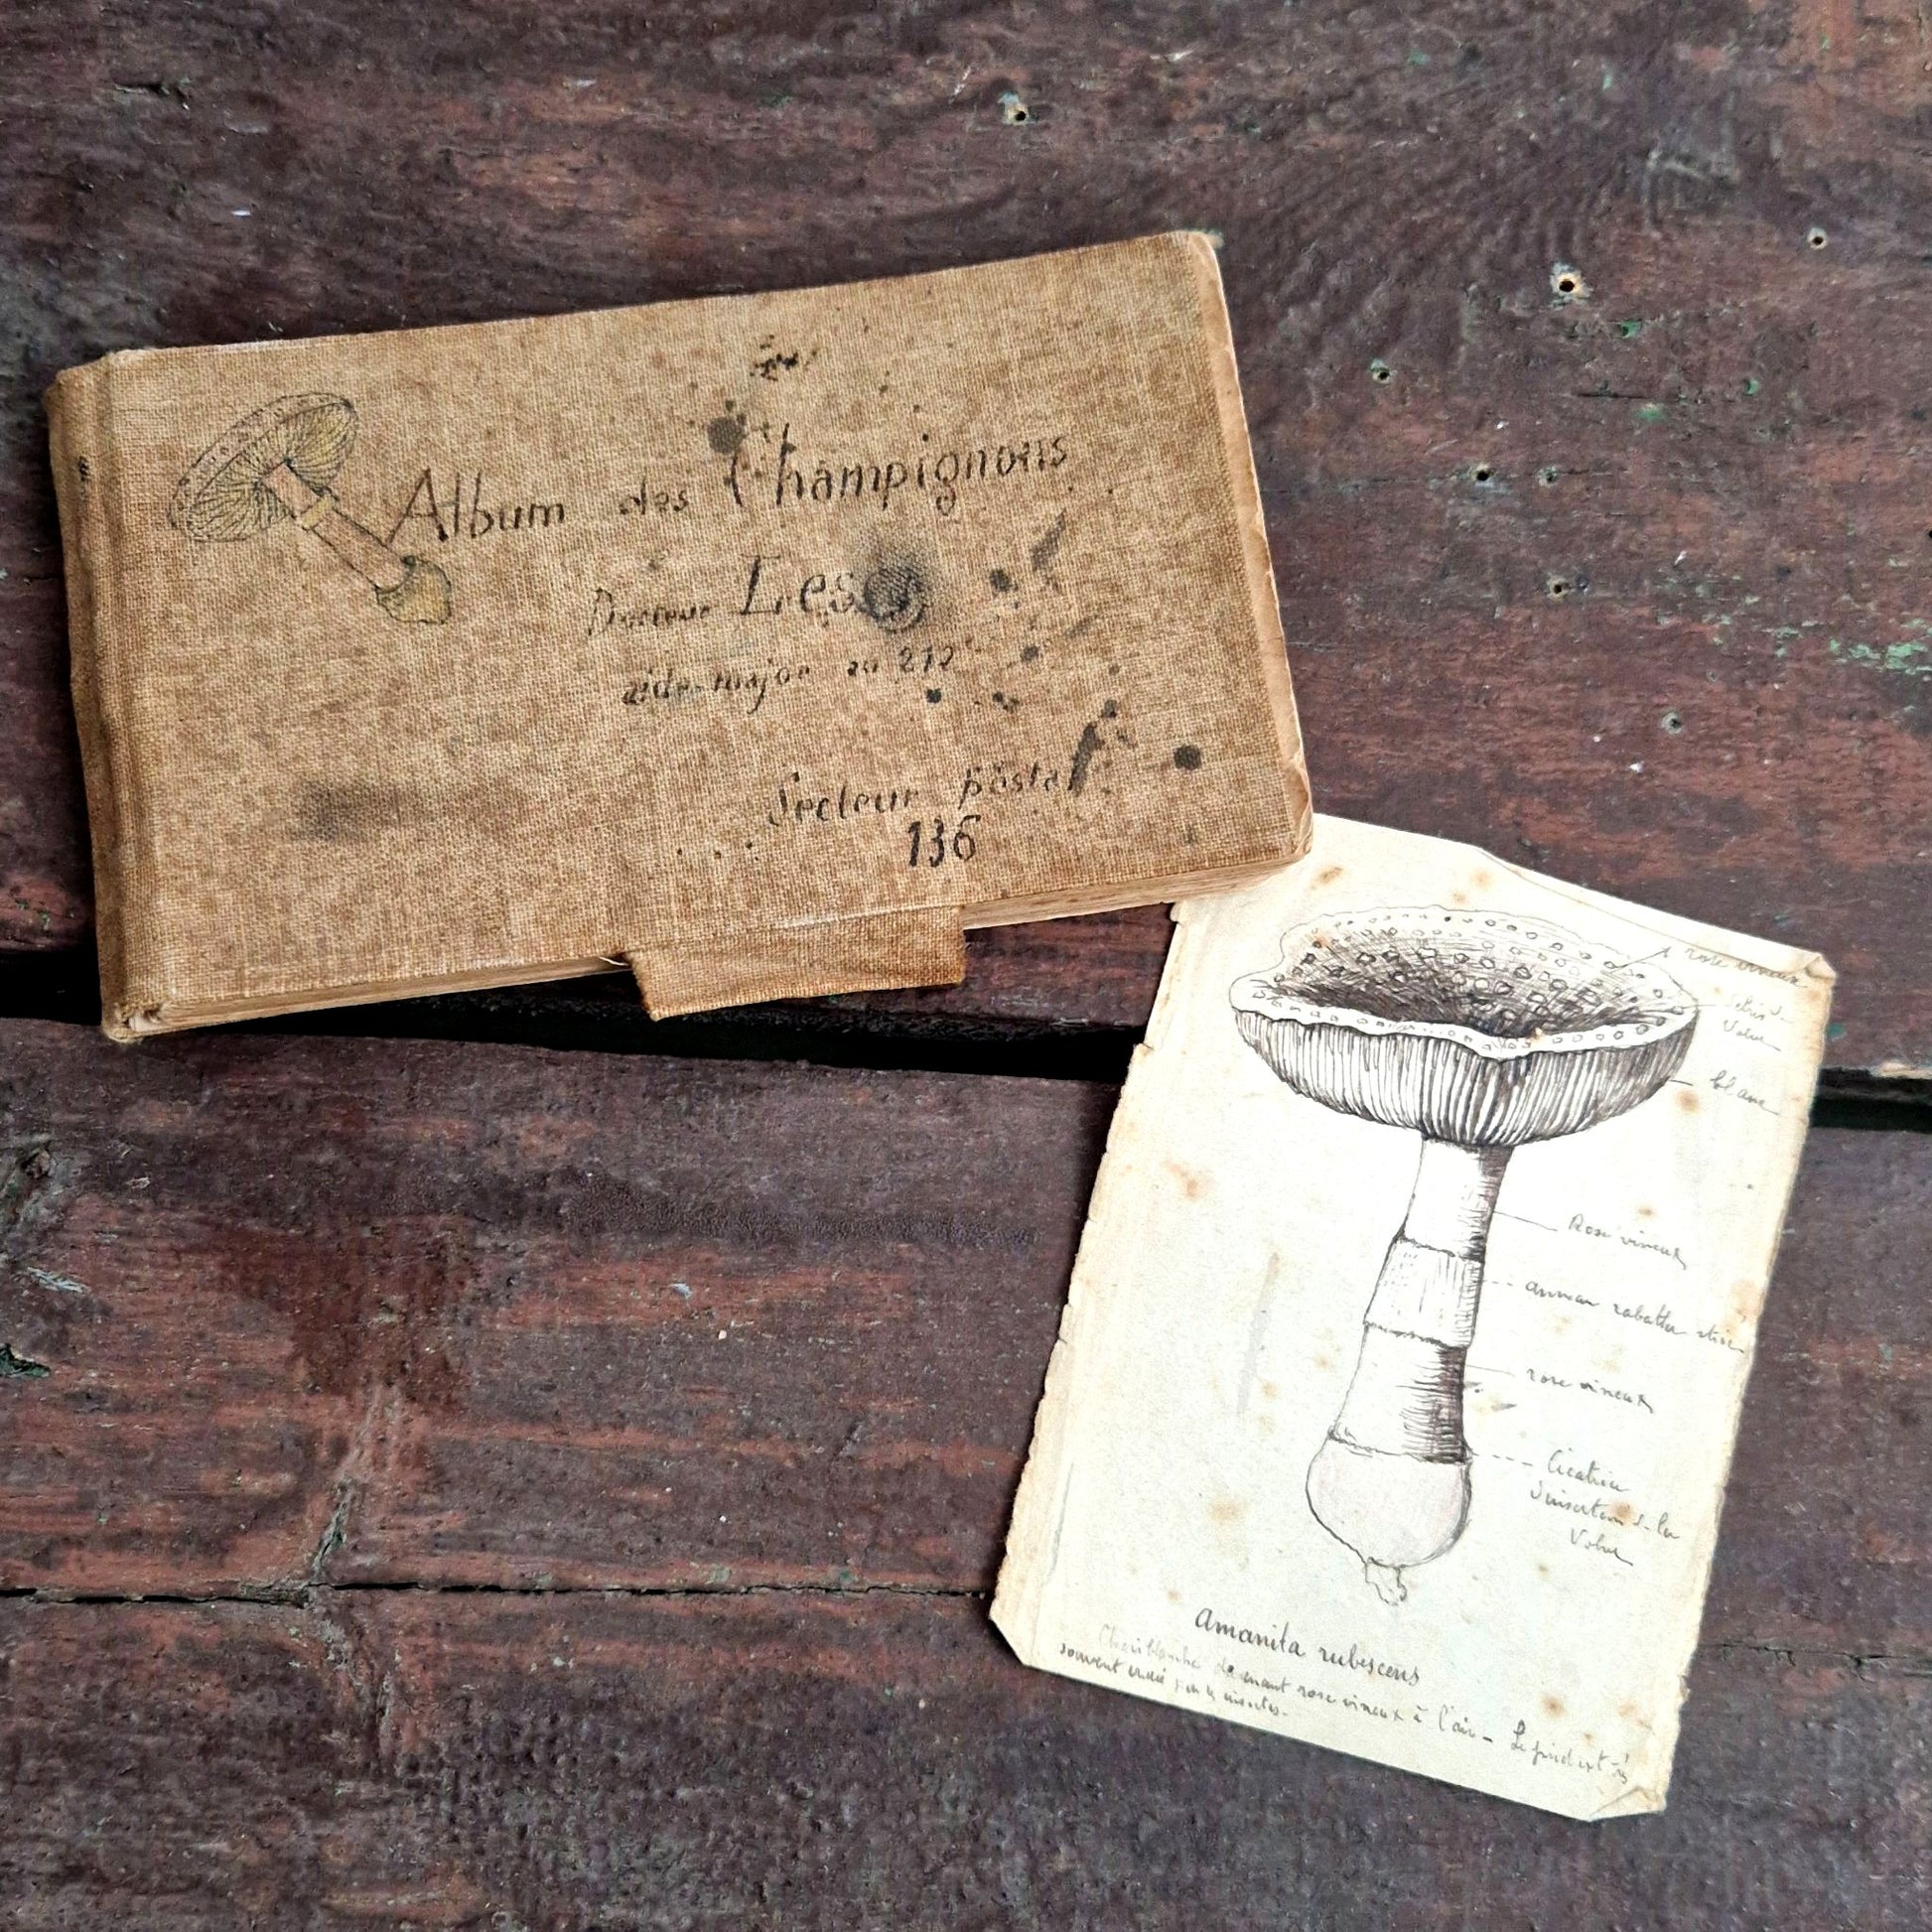 Album des Champignons
Docteur Les
aide-major au 272
Secteur postal
136
rose vineux
débris de
Volve
blanc
Rose vineux
anneau rabattu strié
rose vineux
Cicatrice
d'insertion de la
Volve
Amanita rubescens
Chair blanche devenant rose vineux à l'air - Le pied est
souvent les insectes.